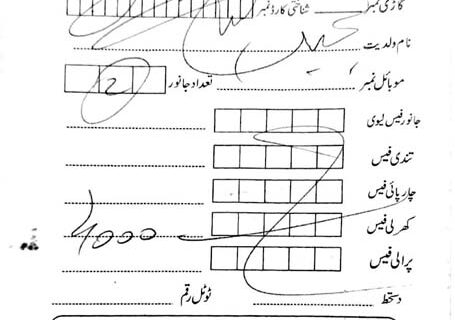 گاڑی نمبر شناختی کارڈ نمبر
نام ولدیت
موبائل نمبر تعداد جانور 2
جانور فیس لیوی
تندی فیس
چارپائی فیس
کھرلی فیس 4000
پرالی فیس
دستخط ٹوٹل رقم